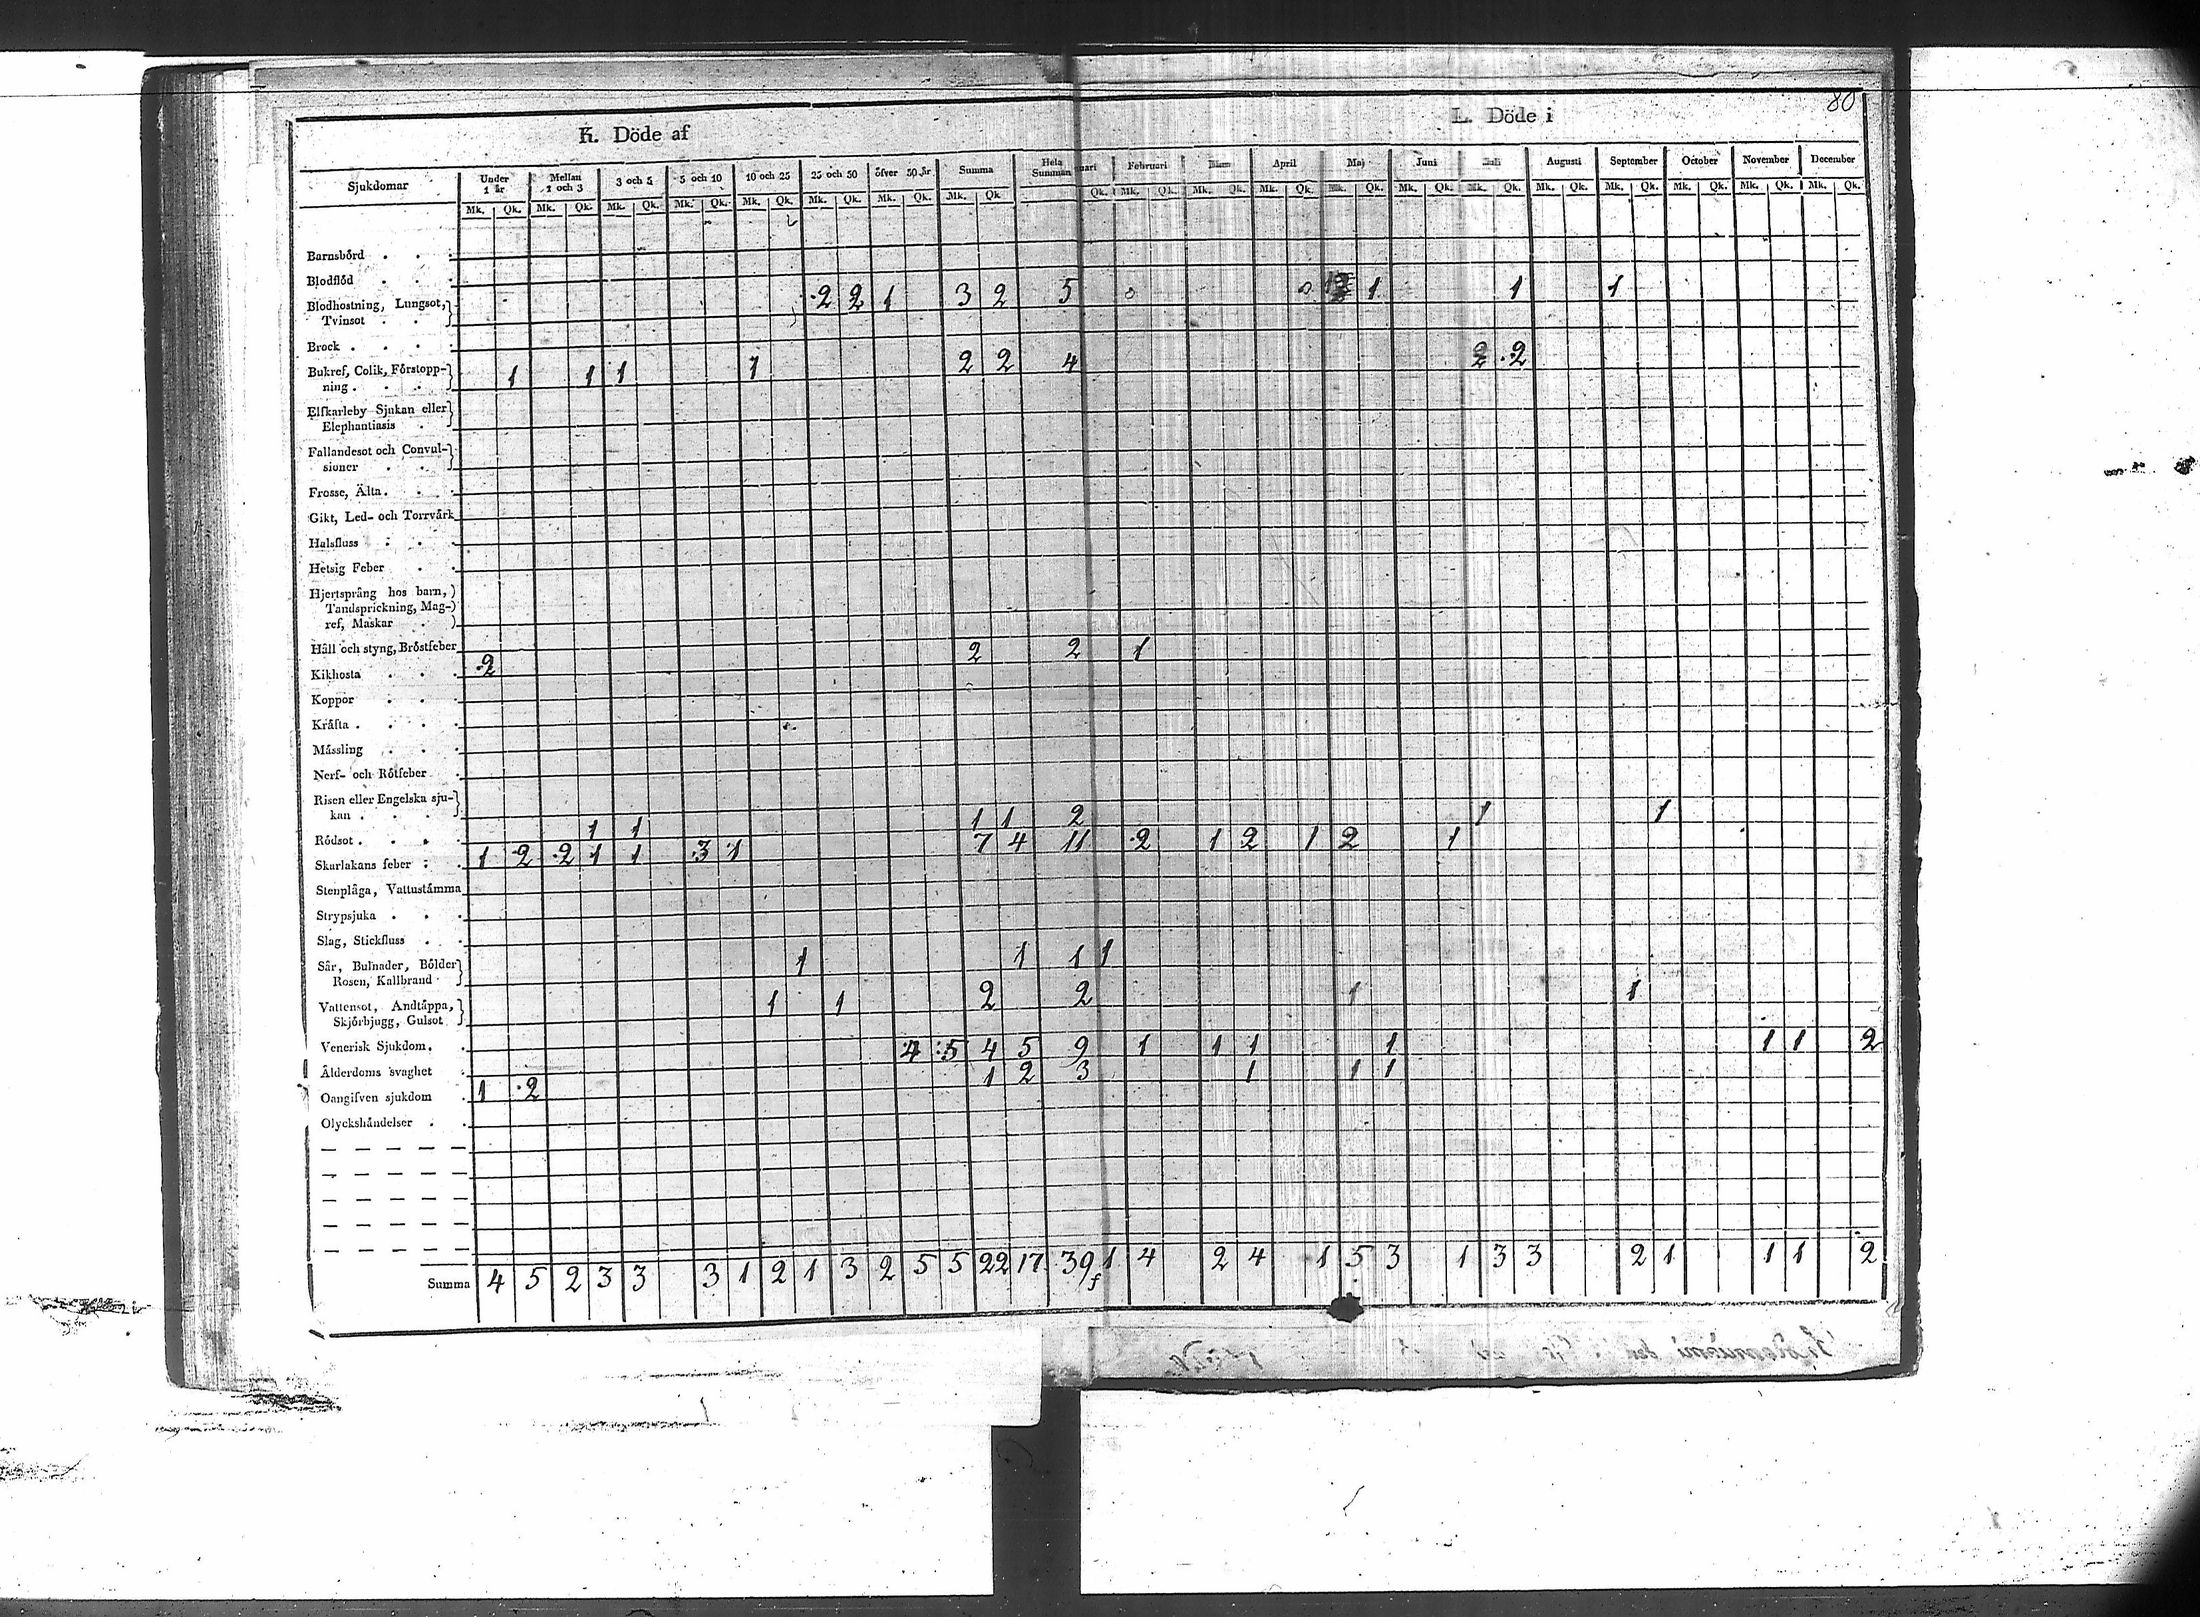 80
K. Döde af
L. Döde i
Sjukdomar Under 1 år Mellan 1 och 3 3 och 5 5 och 10 10 och 25 25 och 50 öfver 50 år Summa Hela Summan uari Februari April Maj Juni Juli Augusti September October November December
Mk. Qk. Mk. Qk. Mk. Qk. Mk. Qk. Mk. Qk. Mk. Qk. Mk. Qk. Mk. Qk. Qk. Mk. Qk. Mk. Qk. Mk. Qk. Mk. Qk. Mk. Qk. Mk. Qk. Mk. Qk. Mk. Qk. Mk. Qk. Mk. Qk. Mk. Qk.
Barnsbörd
Blodflöd
Blodhostning, Lungsot, 2 2 1 3 2 5 1 1 1
Tvinsot
Brock
Bukref, Colik, Förstopp- 1 1 1 1 2 2 4 2 2
ning
Elfkarleby Sjukan eller
Elephantiasis
Fallandesot och Convul-
sioner
Frosse, Älta
Gikt, Led- och Torrvärk
Halsfluss
Hetsig Feber
Hjertsprång hos barn,
Tandsprickning, Mag-
ref, Maskar
Håll och styng, Bröstfeber
Kikhosta 2 2 2 1
Koppor
Kräfta
Mässling
Nerf- och Rötfeber
Risen eller Engelska sju-
kan
Rödsot 1 1 1 1 2 1 1
Skarlakans feber 1 2 2 1 1 3 1 7 4 11 2 1 2 1 2 1
Stenplåga, Vattustämma
Strypsjuka
Slag, Stickfluss
Sår, Bulnader, Bölder 1 1 1 1
Rosen, Kallbrand
Vattensot, Andtäppa, 1 1 2 2 1 1
Skjörbjugg, Gulsot
Venerisk Sjukdom
Ålderdoms svaghet 4 5 4 5 9 1 1 1 1 1 1 2
Oangifven sjukdom 1 2 1 2 3 1 1 1
Olyckshändelser
Summa 4 5 2 3 3 3 1 2 1 3 2 5 5 22 17 39 1 4 2 4 1 5 3 1 3 3 2 1 1 1 2